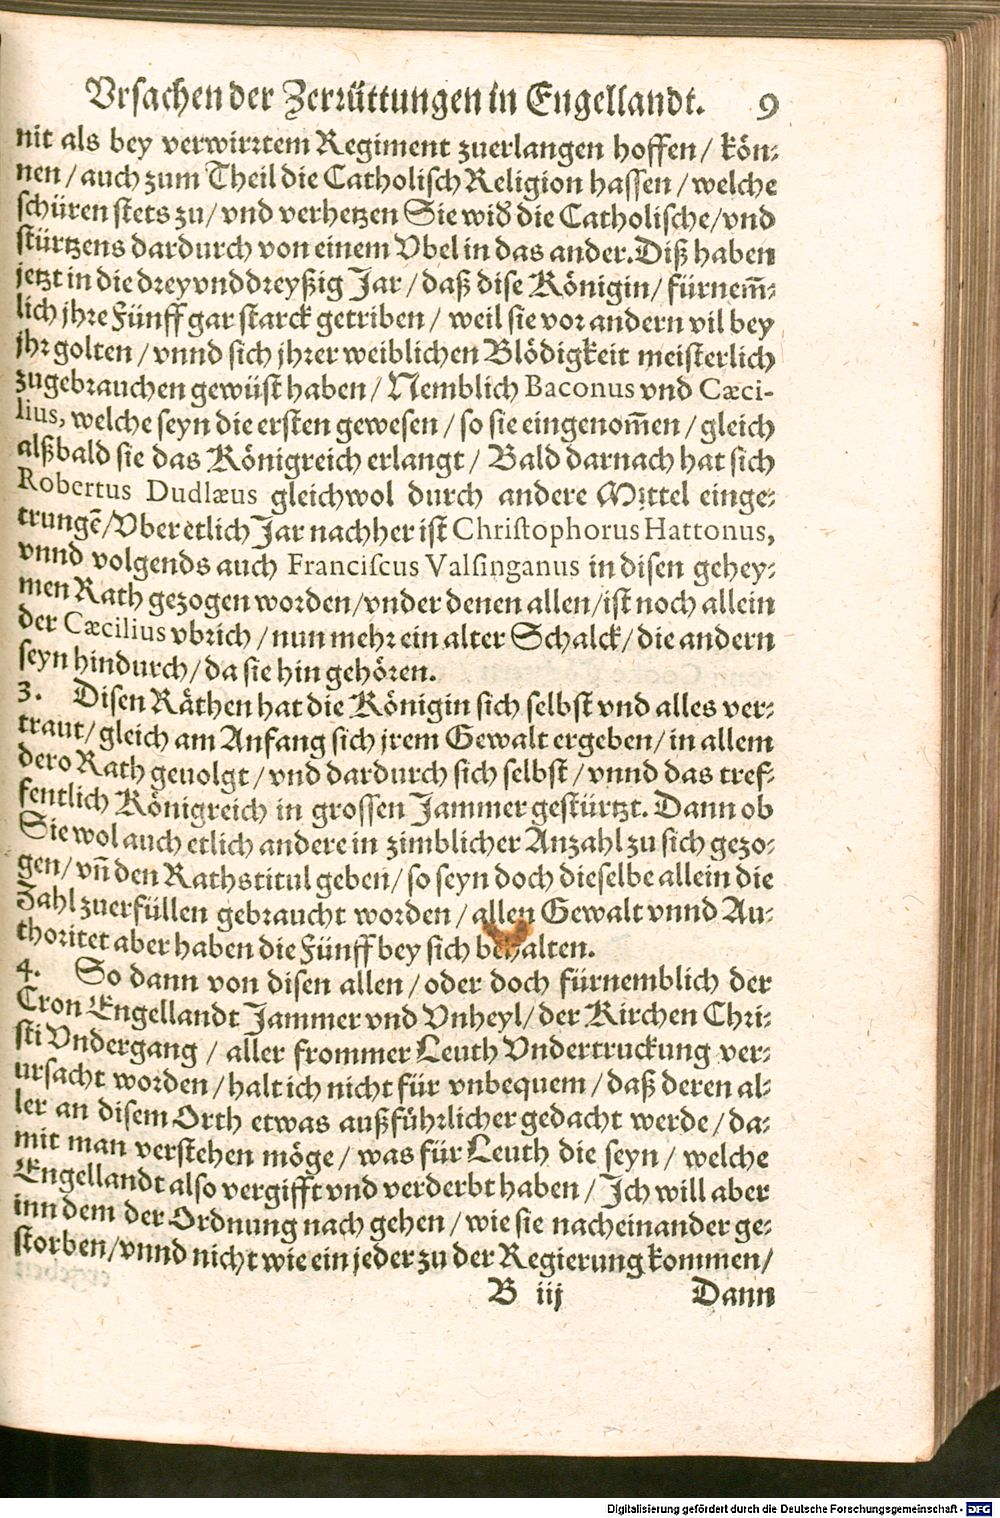 Vrsachen der Zerrüttungen in Engellandt. 9
nit als bey verwirrtem Regiment zuerlangen hoffen/ kön-
nen/ auch zum Theil die Catholisch Religion hassen/ welche
schüren stets zu/ vnd verhetzen Sie wid̃ die Catholische/ vnd
stürtzens dardurch von einem Vbel in das ander. Diß haben
jetzt in die drey vnd dreyßig Jar/ daß dise Königin/ fürnem̃-
lich jhre Fünff gar starck getriben/ weil sie vor andern vil bey
jhr golten/ vnnd sich jhrer weiblichen Blödigkeit meisterlich
zugebrauchen gewüst haben/ Nemblich Baconus vnd Cæci-
lius, welche seyn die ersten gewesen/ so sie eingenom̃en/ gleich
alßbald sie das Königreich erlangt/ Bald darnach hat sich
Robertus Dudlæus gleichwol durch andere Mittel einge-
trungẽ/ Vber etlich Jar nachher ist Christophorus Hattonus,
vnnd volgends auch Franciſcus Valſinganus in disen gehey-
men Rath gezogen worden/ vnder denen allen/ ist noch allein
der Cæcilius vbrich/ nun mehr ein alter Schalck/ die andern
seyn hindurch/ da sie hin gehören.
3. Disen Räthen hat die Königin sich selbst vnd alles ver-
traut/ gleich am Anfang sich jrem Gewalt ergeben/ in allem
dero Rath geuolgt/ vnd dardurch sich selbst/ vnnd das tref-
fentlich Königreich in grossen Jammer gestürtzt. Dann ob
Sie wol auch etlich andere in zimblicher Anzahl zu sich gezo-
gen/ vñ den Rathstitul geben/ so seyn doch dieselbe allein die
Zahl zuerfüllen gebraucht worden/ allen Gewalt vnnd Au-
thoritet aber haben die Fünff bey sich behalten.
4. So dann von disen allen/ oder doch fürnemblich der
Cron Engellandt Jammer vnd Vnheyl/ der Kirchen Chri-
sti Vndergang/ aller frommer Leuth Vndertruckung ver-
ursacht worden/ halt ich nicht für vnbequem/ daß deren al-
ler an disem Orth etwas außführlicher gedacht werde/ da-
mit man verstehen möge/ was für Leuth die seyn/ welche
Engellandt also vergifft vnd verderbt haben/ Ich will aber
inn dem der Ordnung nach gehen/ wie sie nacheinander ge-
storben/ vnnd nicht wie ein jeder zu der Regierung kommen/
B iij Dann
Digitalisierung gefördert durch die Deutsche Forschungsgemeinschaft - DFG